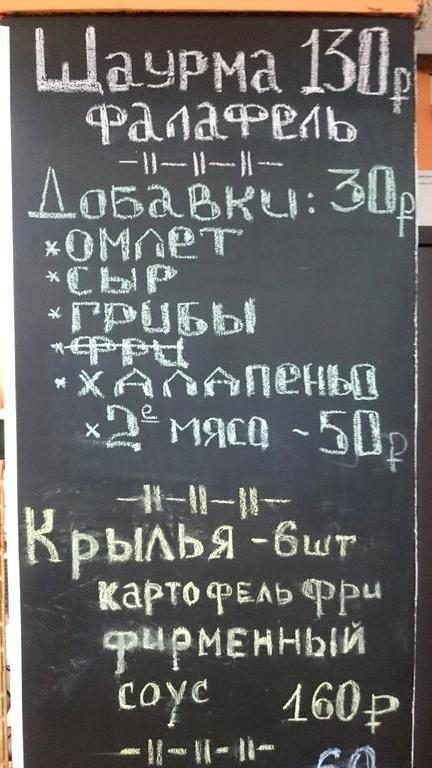 Шаурма 130₽
фалафель
—||—||—||—
Добавки: 30₽
*омлет
*сыр
*грибы
*фри
*халапеньо
×2е мясо - 50₽
—||—||—||—
Крылья - 6шт
картофель фри
фирменный
соус 160₽
—||—||—||—
60